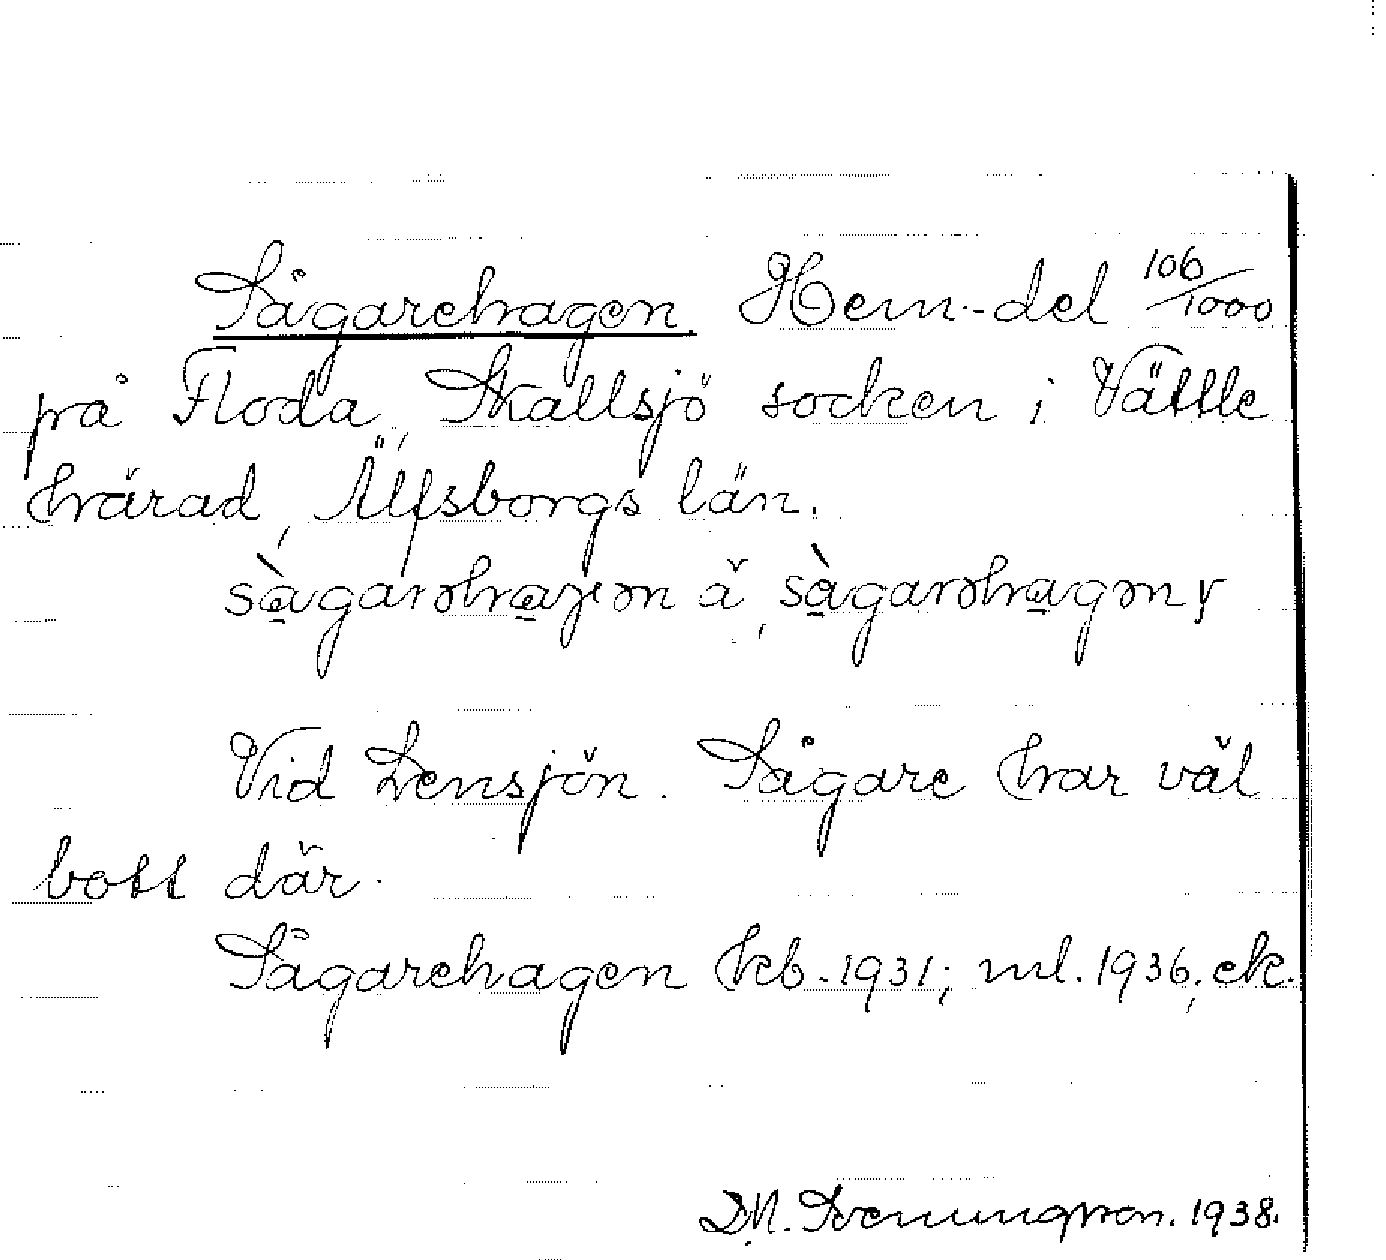 Sågarehagen. Hem.-del 106/1000
på Floda, Skallsjö socken i Vättle
härad, Älfsborgs län.
Vid Lensjön. Sågare har väl
bott där.
Sågarehagen kb. 1931; ml. 1936; ek.
D.N. 1938.